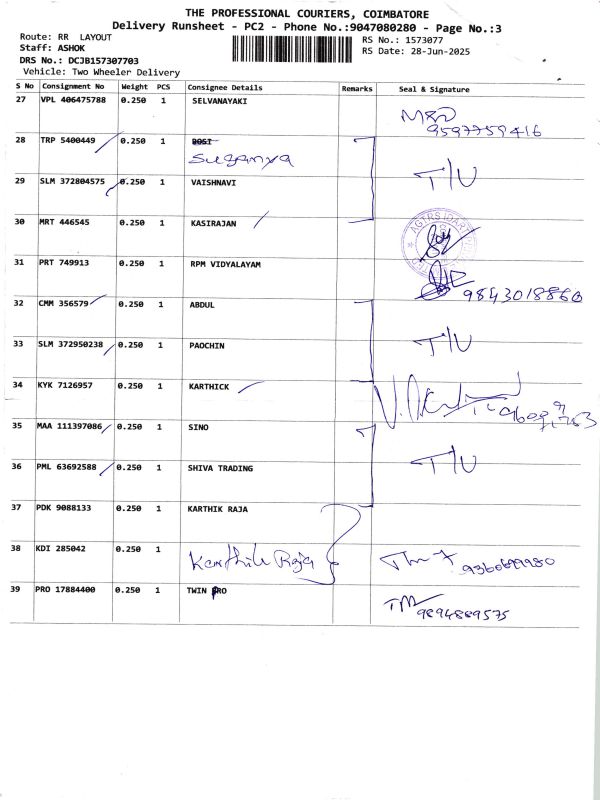 THE PROFESSIONAL COURIERS, COIMBATORE
Delivery Runsheet - PC2 - Phone No.:9047080280 - Page No.:3
Route: RR LAYOUT
RS No.: 1573077
Staff: ASHOK
RS Date: 28-Jun-2025
DRS No.: DCJB157307703
Vehicle: Two Wheeler Delivery
S No Consignment No Weight PCS Consignee Details Remarks Seal & Signature
27 VPL 406475788 0.250 1 SELVANAYAKI
9597759416
28 TRP 5400449 0.250 1 BOSI
Suganya
29 SLM 372804575 0.250 1 VAISHNAVI T/U
30 MRT 446545 0.250 1 KASIRAJAN
31 PRT 749913 0.250 1 RPM VIDYALAYAM
9843018860
32 CMM 356579 0.250 1 ABDUL
33 SLM 372950238 0.250 1 PAOCHIN T/U
34 KYK 7126957 0.250 1 KARTHICK
35 MAA 111397086 0.250 1 SINO
36 PML 63692588 0.250 1 SHIVA TRADING T/U
37 PDK 9088133 0.250 1 KARTHIK RAJA
38 KDI 285042 0.250 1 Karthik Raja 9360699980
39 PRO 17884400 0.250 1 TWIN PRO
9894889575